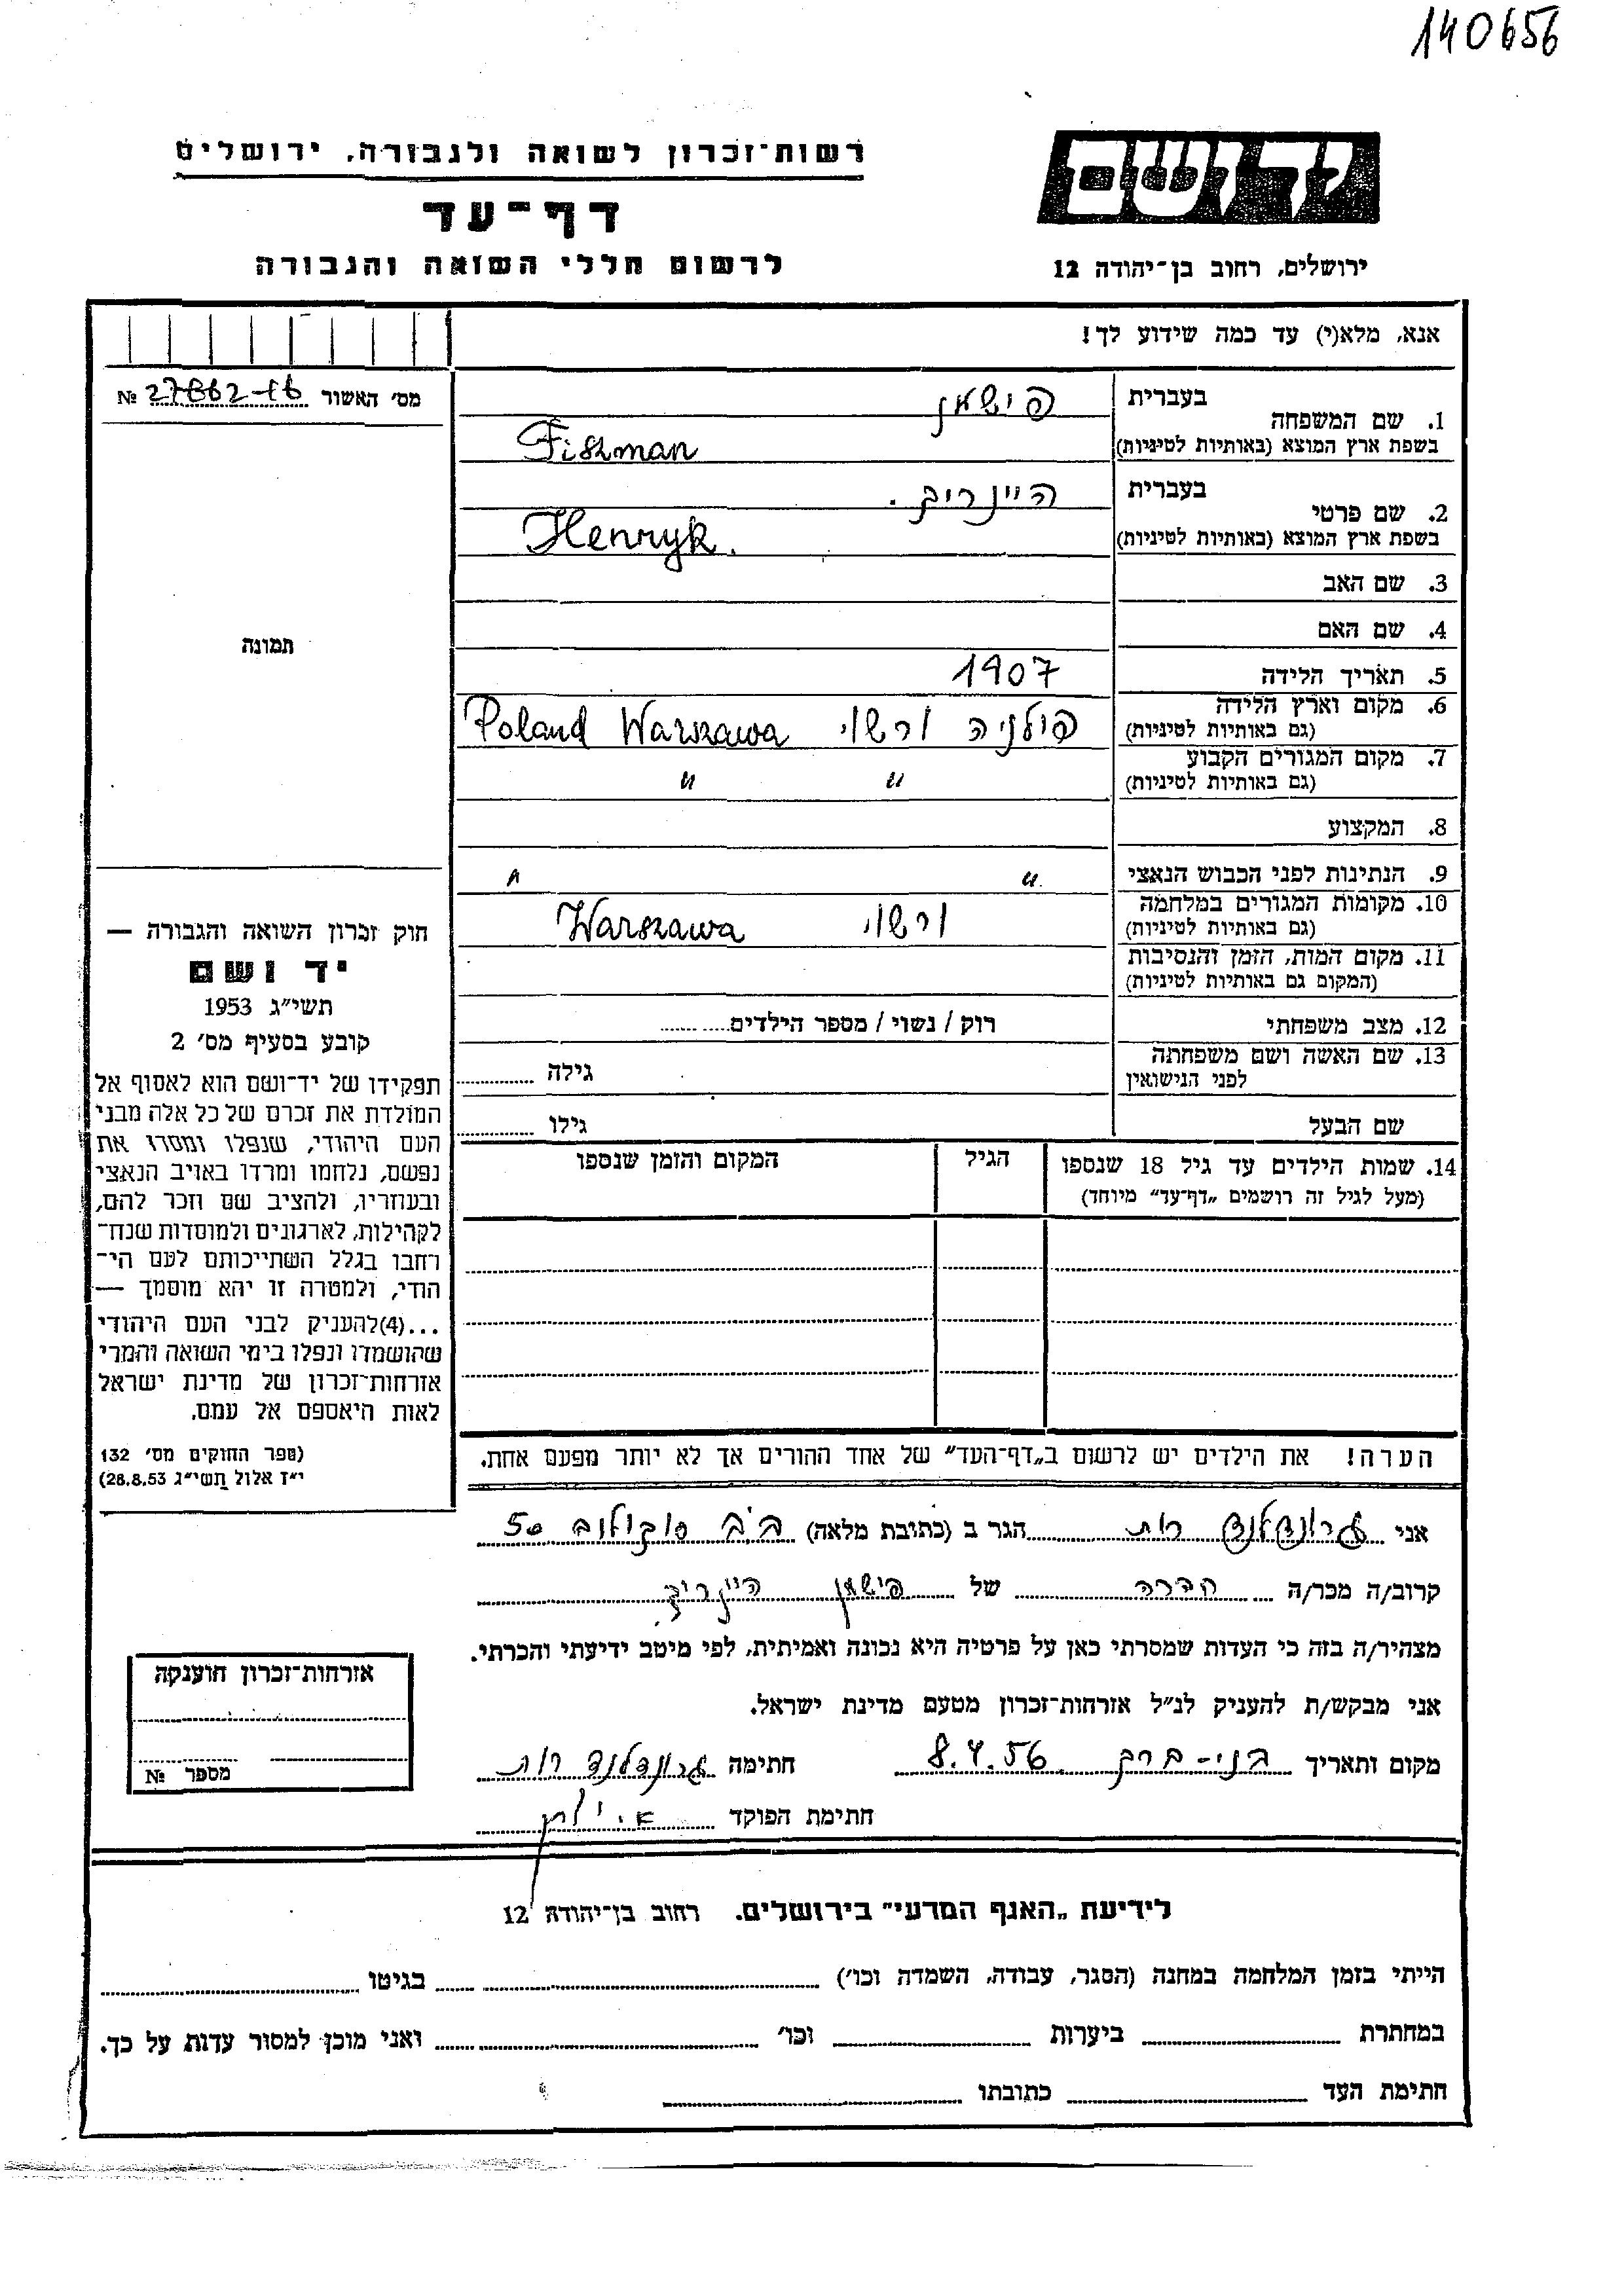 140656
יד ושם
רשות־זכרון לשואה ולגבורה, ירושלים
דף־עד
לרשום חללי השואה והגבורה
ירושלים, רחוב בן־יהודה 12
אנא, מלא(י) עד כמה שידוע לך!
מס׳ האשור №
1. שם המשפחה
בעברית פישמן
בשפת ארץ המוצא (באותיות לטיניות) Fiszman
2. שם פרטי
בעברית היינריך.
בשפת ארץ המוצא (באותיות לטיניות) Henryk.
3. שם האב
4. שם האם
5. תאריך הלידה 1907
6. מקום וארץ הלידה
(גם באותיות לטיניות) פולניה ורשוי Poland Warszawa
7. מקום המגורים הקבוע
(גם באותיות לטיניות) " "
8. המקצוע
9. הנתינות לפני הכבוש הנאצי "
10. מקומות המגורים במלחמה
(גם באותיות לטיניות) ורשוי Warszawa
11. מקום המות, הזמן והנסיבות
(המקום גם באותיות לטיניות)
12. מצב משפחתי רוק / נשוי / מספר הילדים
13. שם האשה ושם משפחתה
לפני הנישואין גילה
שם הבעל גילו
14. שמות הילדים עד גיל 18 שנספו
(מעל לגיל זה רושמים „דף־עד" מיוחד)
הגיל
המקום והזמן שנספו
הערה! את הילדים יש לרשום ב„דף־העד" של אחד ההורים אך לא יותר מפעם אחת.
תמונה
חוק זכרון השואה והגבורה —
יד ושם
תשי"ג 1953
קובע בסעיף מס׳ 2
תפקידו של יד־ושם הוא לאסוף אל
המולדת את זכרם של כל אלה מבני
העם היהודי, שנפלו ומסרו את
נפשם, נלחמו ומרדו באויב הנאצי
ובעוזריו, ולהציב שם וזכר להם,
לקהילות, לארגונים ולמוסדות שנח־
רבו בגלל השתייכותם לעם הי־
הודי, ולמטרה זו יהא מוסמך —
...(4)להעניק לבני העם היהודי
שהושמדו ונפלו בימי השואה והמרי
אזרחות־זכרון של מדינת ישראל
לאות היאספם אל עמם.
(ספר החוקים מס׳ 132
י"ז אלול תשי"ג 28.8.53)
אני גרונדלנד רות הגר ב (כתובת מלאה) ב.ב סוקולוב 50
קרוב/ה מכר/ה של פישמן היינריך
מצהיר/ה בזה כי העדות שמסרתי כאן על פרטיה היא נכונה ואמיתית, לפי מיטב ידיעתי והכרתי.
אני מבקש/ת להעניק לנ"ל אזרחות־זכרון מטעם מדינת ישראל.
מקום ותאריך בני-ברק 8.4.56 חתימה גרונדלנד רות
חתימת הפוקד
אזרחות־זכרון הוענקה
מספר №
לידיעת „האגף המדעי" בירושלים. רחוב בן־יהודה 12
הייתי בזמן המלחמה במחנה (הסגר, עבודה, השמדה וכו׳) בגיטו
במחתרת ביערות וכו׳ ואני מוכן למסור עדות על כך.
חתימת העד כתובתו